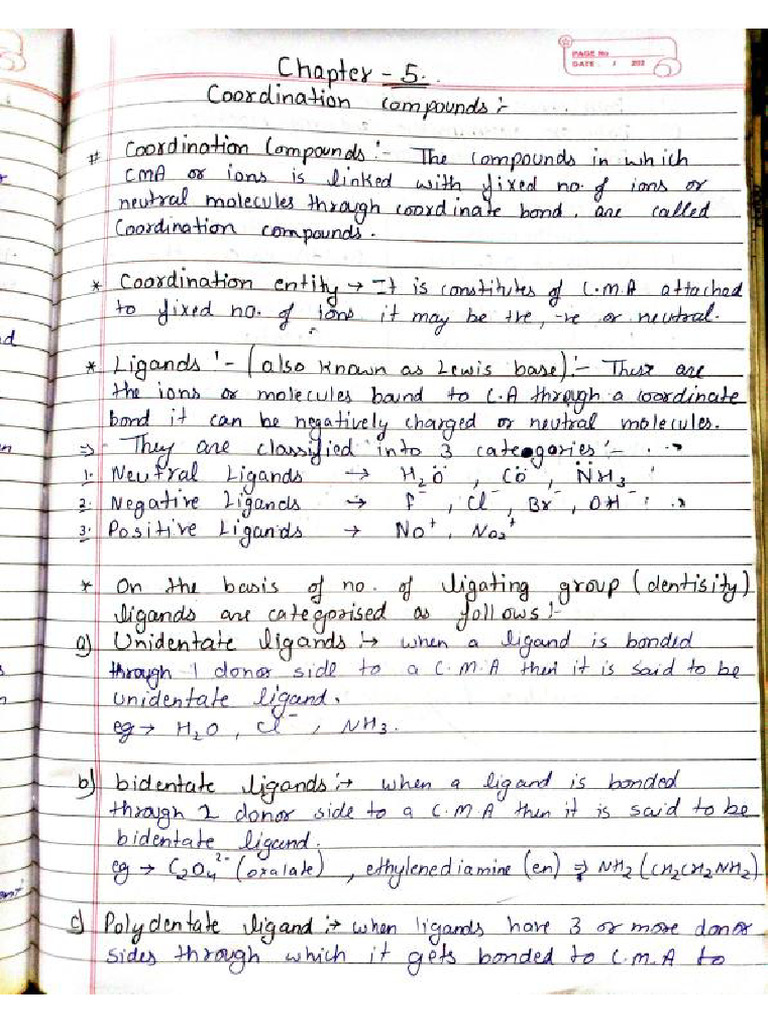 PAGE No
DATE / 202
Chapter - 5..
Coordination Compounds :-
# Coordination Compounds :- The compounds in which
CMA or ions is linked with fixed no. of ions or
neutral molecules through coordinate bond. are called
Coordination compounds.
* Coordination entity → It is constitutes of C.M.A attached
to fixed no. of ions it may be +re, -re or neutral.
* Ligands :- (also known as Lewis base) :- These are
the ions or molecules bound to C.A through a coordinate
bond it can be negatively charged or neutral molecules.
⇒ They are classified into 3 categories :-
1. Neutral Ligands → H₂Ö , CÖ , N̈H₃
2. Negative Ligands → F⁻ , Cl⁻ , Br⁻ , OH⁻
3. Positive Ligands → No⁺ , No₂⁺
* On the basis of no. of ligating group (dentisity)
ligands are categorised as follows :-
a) Unidentate ligands :→ when a ligand is bonded
through 1 donor side to a C.M.A then it is said to be
unidentate ligand.
eg → H₂O , Cl⁻ , NH₃.
b) bidentate ligands :→ when a ligand is bonded
through 2 donor side to a C.M.A then it is said to be
bidentate ligand.
eg → C₂O₄²⁻ (oxalate) , ethylenediamine (en) ⇒ NH₂ (CH₂CH₂NH₂)
c) Polydentate ligand :→ when ligands have 3 or more donor
sides through which it gets bonded to C.M.A to